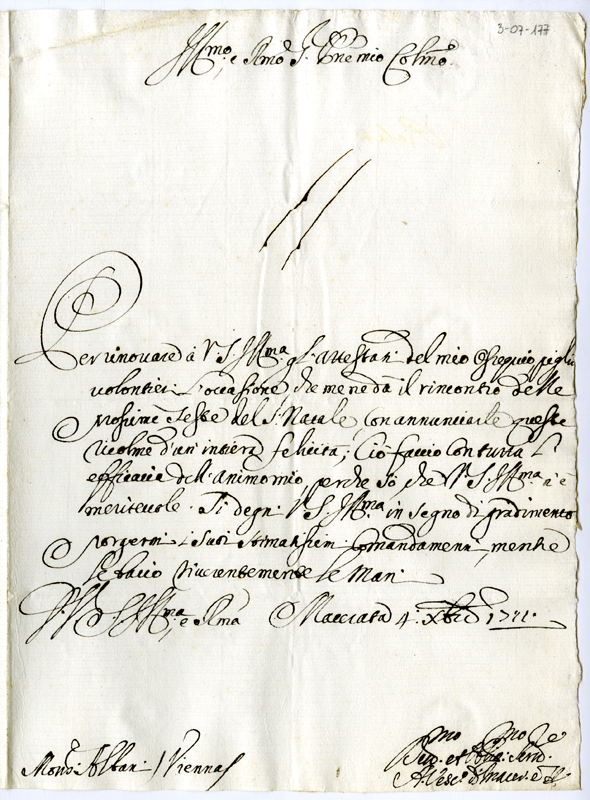 3-07-177
Ill.mo e Rmo Sr. Pñe mio Colmo
Per rinovare à V.S. Ill.ma gl'attestati del mio ossequio piglio
volontieri l'occasione, che me ne dà il rincontro delle
prossime Feste del S. Natale, con annunciarle queste
ricolme d'un' intiera felicità; Ciò faccio con tutta l'
efficacia dell'animo mio, perche sò che V.S. Ill.ma n'è
meritevole. Si degni V.S. Ill.ma in segno di gradimento
porgermi i suoi stimatissimi Comandamenti, mentre
le bacio riverentemente le Mani
Di V.S. Ill.ma, e Rma Macerata 4. Xbre 1711.
Mons. Albani / Vienna /
Dev.mo et Obbl.mo Serv.re